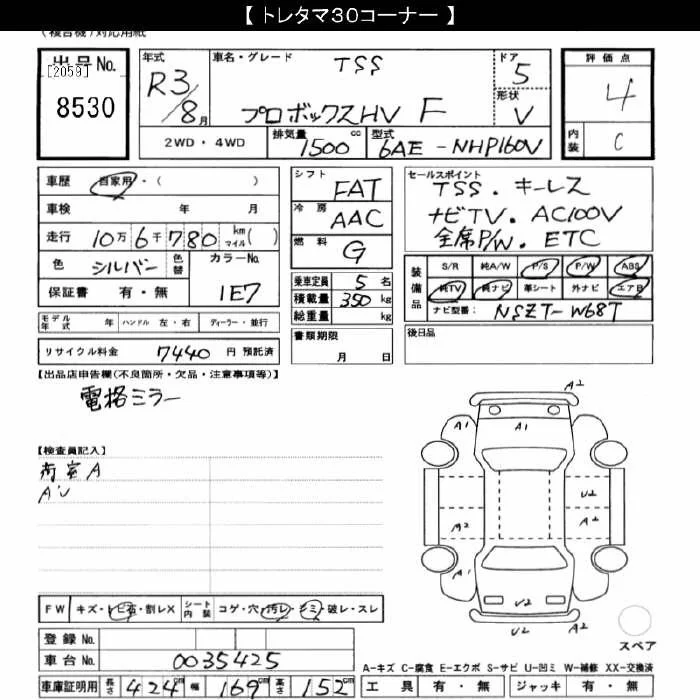 【 トレタマ30コーナー 】
(複合機)対応用紙
出品No.
[2059]
8530
年式
R3/8月
車名・グレード
TSS
プロボックスHV F
ドア
5
形状
V
2WD・4WD
排気量
1500cc
型式
6AE-NHP160V
評価点
4
内装
C
車歴 自家用・( )
車検 年 月
走行 10万6千780 km マイル( )
色 シルバー 色替 カラーNo.
1E7
保証書 有・無
シフト FAT
冷房 AAC
燃料 G
乗車定員 5名
積載量 350kg
総重量 kg
書類期限
月 日
セールスポイント
TSS. キーレス
ナビTV. AC100V
全席P/W. ETC
装備品
S/R 純A/W P/S P/W ABS
純TV 純ナビ 革シート 外ナビ エアB
ナビ型番: NSZT-W68T
後日品
モデル年式 年 ハンドル 左・右 ディーラー・並行
リサイクル料金 7440 円 預託済
【出品店申告欄(不良箇所・欠品・注意事項等)】
電格ミラー
【検査員記入】
荷室A
A'U
A2
A1 A1 A1
U2
A2 A2
A1
U2 A2
スペア
FW キズ・トビ石・割レX シート内装 コゲ・穴・汚レ・シミ・破レ・スレ
登録No.
車台No. 0035425
車庫証明用 長さ 424cm 幅 169cm 高さ 152cm
A-キズ C-腐食 E-エクボ S-サビ U-凹ミ W-補修 XX-交換済
工具 有・無 ジャッキ 有・無